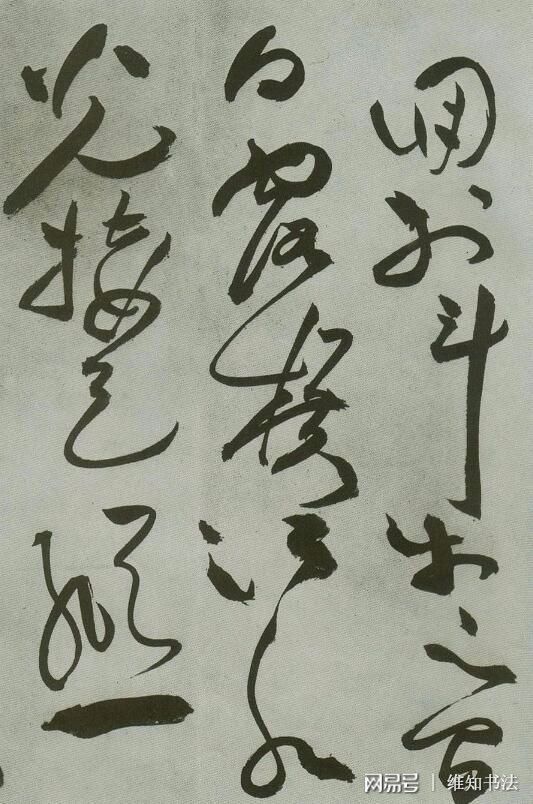 徊於斗牛之間
白露橫江水
光接天縱一
网易号 | 维知书法